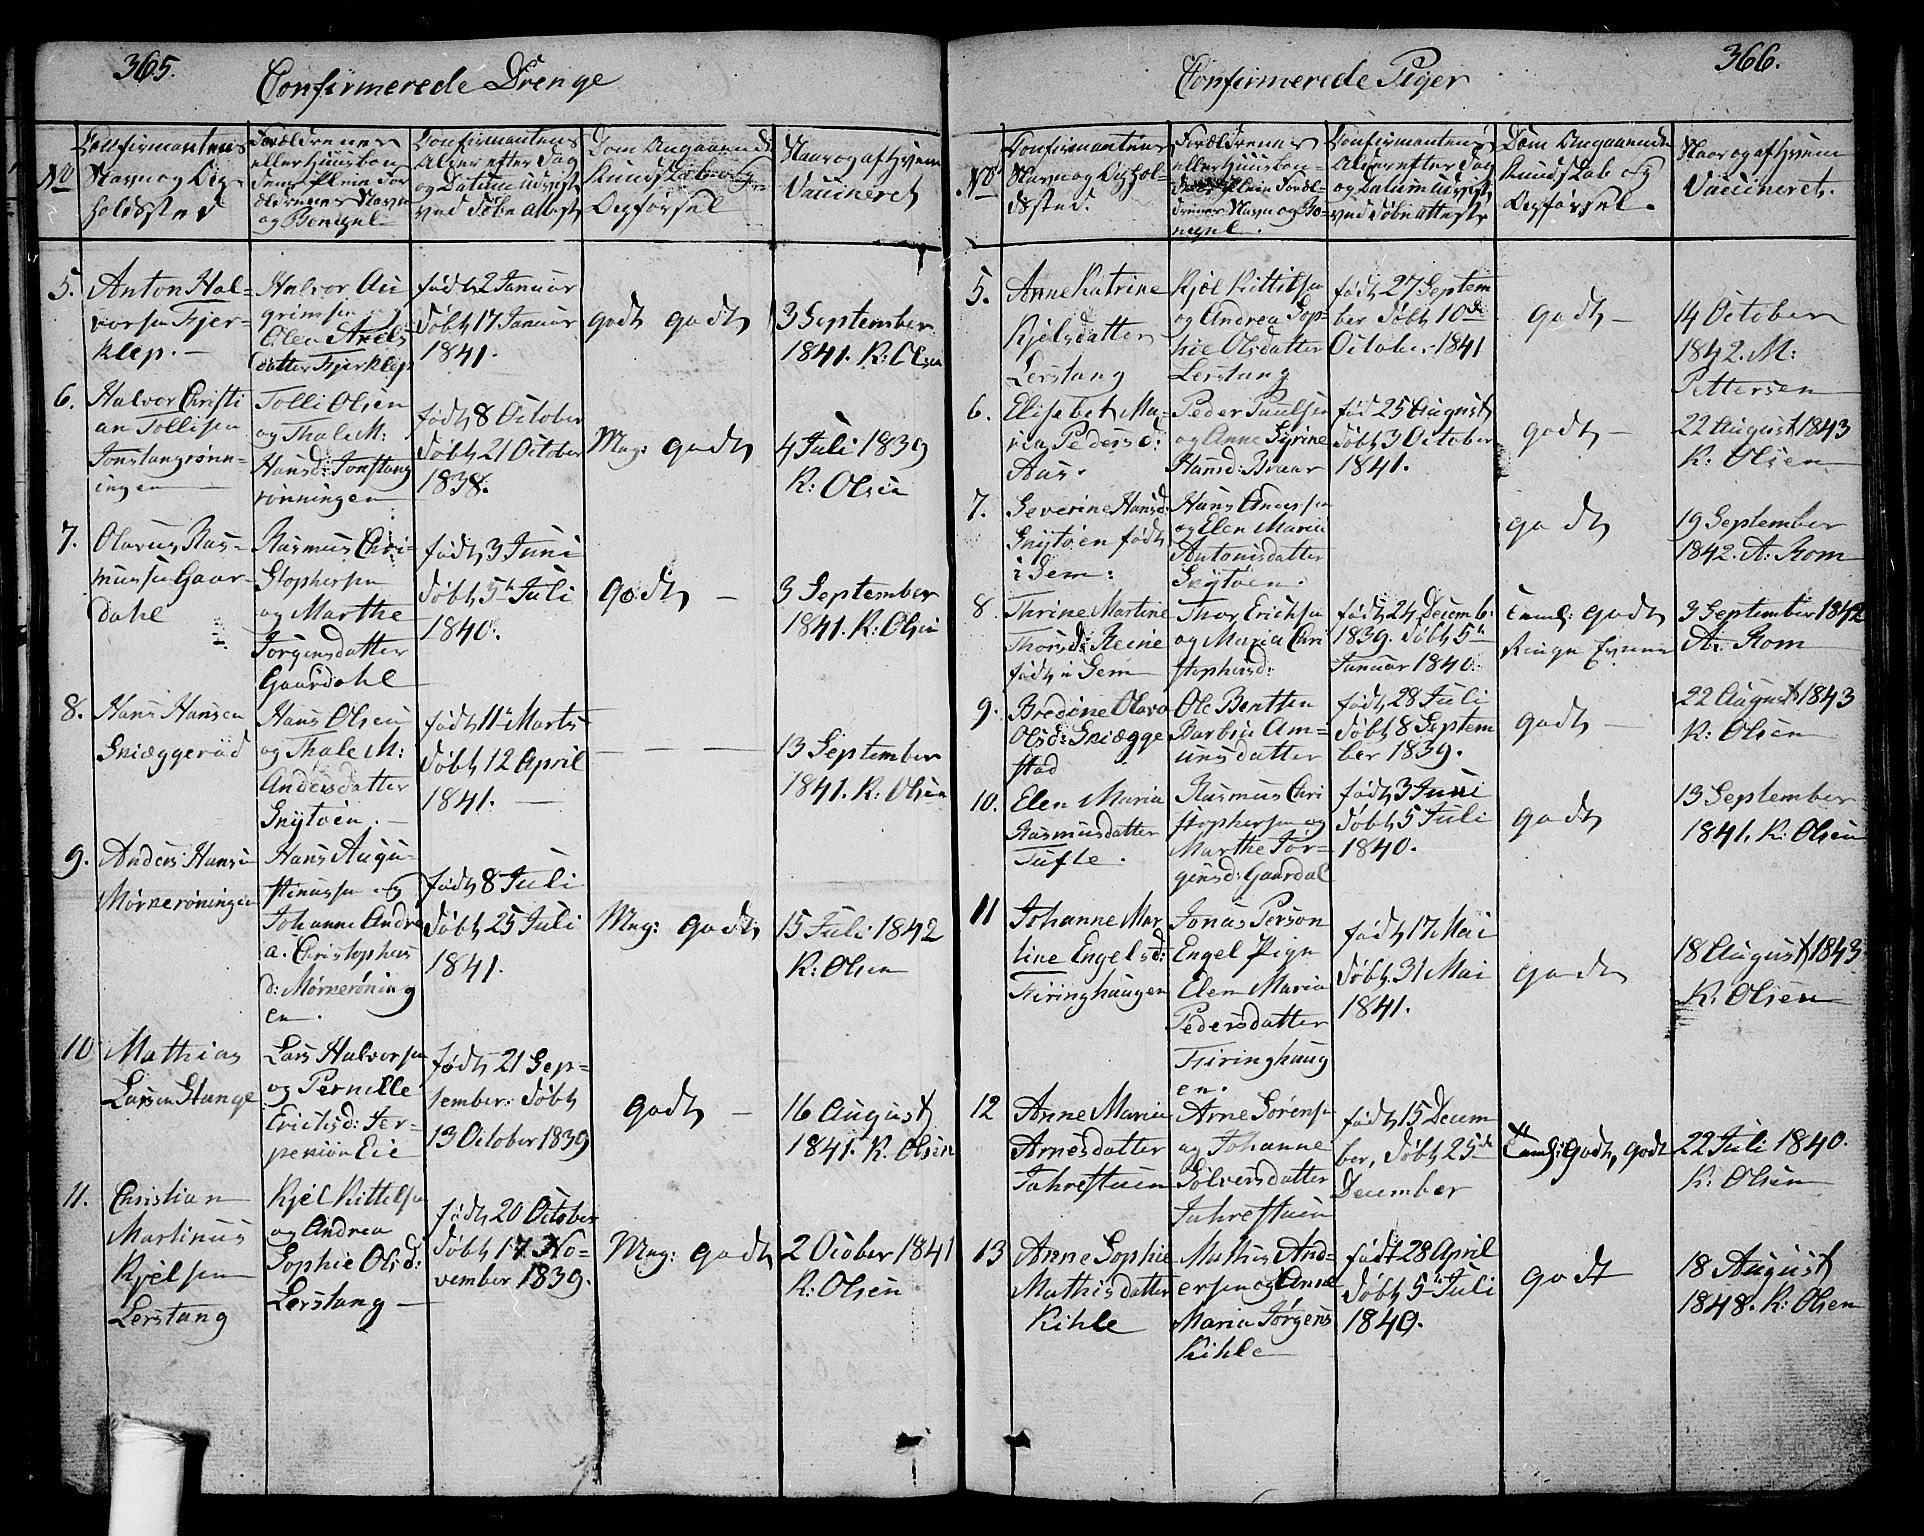 365.
Confirmerede Drenge
No
Confirmantens
Navn og Op-
holdssted
Forældrenes
eller Huusbon
dens
Forældrenes Navn
og Bopæl
Confirmantens
Alder efter Dag
og Datum udvist
ved Døbe Attest
Dom Angaaende
Kundskab og
Opførsel
Naar og af Hvem
Vaccineret
5.
Anton Hal-
vorsen Fjer-
klep. —
Halvor An
grimsen og
Olea Axels
datter Fjerklep
født 2 Januar
Døbt 17 Januar
1841.
godt godt
3 September
1841. K: Olsen
6.
Halvor Christi
an Tollisen
Jonstangrønn-
ingen
Tolli Olsen
og Thale M:
Hansd: Jonstang
rønningen
født 8 October
Døbt 21 October
1838.
Meg: godt
4 Juli 1839
K: Olsen
7.
Olavus Ras-
mussen Gaar-
dahl
Rasmus Chri-
stophersen
og Marthe
Jørgensdatter
Gaardahl
født 3 Juni
Døbt 5te Juli
1840.
godt —
3 September
1841. K: Olsen
8.
Hans Hansen
Sniæggerød
Hans Olsen
og Thale M:
Andersdatter
Snytøen. —
født 11te Marts
Døbt 12 April
1841. —
13 September
1841. K: Olsen
9.
Anders Hansen
Mørnerøningen
Hans Augu-
stinussen og
Johanne Andre
a. Christophers
d: Mørnerøning
en.
født 8 Juli
Døbt 25 Juli
1841.
Meg: godt
15 Juli 1842
K: Olsen
10
Mathias
Larsen Stange
Lars Halvorsen
og Pernille
Erichsd: Jer-
pensiøn Eie
født 21 Sep-
tember. Døbt
13 October 1839
godt —
16 August
1841. K. Olsen
11.
Christian
Martinus
Kjelsen
Lerstang
Kjel Kittelsen
og Andrea
Sophie Olsd:
Lerstang —
født 20 October
Døbt 17 No-
vember 1839.
Meg: godt
2 Ocober 1841
K: Olsen
366.
Confirmerede Piger
No
Confirmantens
Navn og Ophol-
dsted.
Forældrenes
eller Huusbon-
Foræl-
drenes Navn og Bo-
pæl.
Confirmantens
Alder efter Dag
og Datum udvist
ved Døbe Atteste
Dom Angaaende
Kundskab og
Opførsel.
Naar og af Hvem
Vaccineret.
5.
Anne Katrine
Kjelsdatter
Lerstang
Kjel Kittilsen
og Andrea Sop-
hie Olsdatter
Lerstang
født 27 Septem
ber Døbt 10de
October 1841
godt —
14 October
1842. M:
Pettersen
6.
Elisabet Ma-
ria Pedersd:
Aas.
Peder Paulsen
og Anne Syrine
Hansd: Braar
fød 25 August
Døbt 3 October
1841.
godt —
22 August 1843
K: Olsen
7.
Severine Hansd:
Snytøen født
i Sem:
Hans Andersen
og Elen Maria
Antonisdatter
Snytøen.
godt
19 September
1842. A: Rom
8
Thrine Martine
Thorsd: Reine
født i Sem
Thor Ericksen
og Maria Chri
stophersd:
født 24 Decemb:
1839. Døbt 5te
Januar 1840.
Teml: godt
Ringe Evner
3 September 1842
A: Rom
9.
Bredine Olava
Olsd: Sniægge
stad
Ole Bentsen
Barbra Am-
unsdatter
født 28 Juli
Døbt 8 Septem
ber 1839.
godt —
22 August 1843
K: Olsen
10.
Elen Maria
Rasmusdatter
Tufte.
Rasmus Chri
stophersen og
Marthe Jør-
gensd: Gaardal
født 3 Juni
Døbt 5 Juli
1840.
godt
13 September
1841. K: Olsen
11
Johanne Mar
tine Engelsd:
Firinghaugen
Jonas Person
Engel Pige
Elen Maria
Pedersdatter
Firinghaug
en.
født 17 Mai
Døbt 31 Mai
1841.
godt
18 August 1843
K: Olsen
12
Anne Maria
Arnesdatter
Jahrestuen
Arne Sørensen
og Johanne
Sølversdatter
Jahrestuen
født 15 Decem
ber, Døbt 25de
December
Teml: godt, godt
22 Juli 1840.
K: Olsen
13
Anne Sophie
Mathisdatter
Kihle
Mathis And-
ersen og Anne
Maria Jørgens
Kihle
født 28 April
Døbt 5te Juli
1840.
godt
18 August
1848. K: Olsen